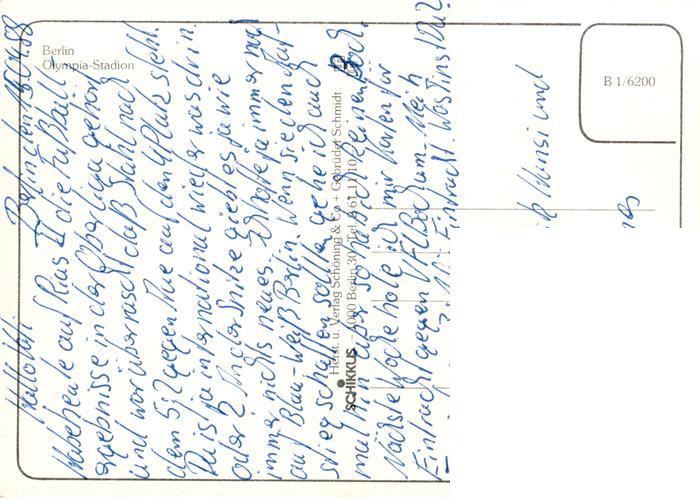 Berlin
Olympia-Stadion
B 1/6200
Herst. u. Verlag Schöning & Co + Gebrüder Schmidt
SCHIKKUS – 1000 Berlin 30, Tel. 0 61 11/10
Berlin den 15.04.88
Hallo
Habe heute auf Rias II die Fußball-
ergebnisse in der Oberliga gehört
und war überrascht daß Stahl nach
dem 5:2 gegen Aue auf den 4 Platz steht.
Da ist ja international wieder was drin.
Oder? An der Spitze giebt es ja wie
immer nichts neues. Ich hoffe ja immer noch
auf Blau-Weiß Berlin. Wenn sie den Auf-
stieg schaffen sollten gehe ich auch
mal hin
Nächste Woche hole ich mir Karten für
Eintracht gegen VFL Bochum. Mein
Eintracht. Was tipst Du?
und